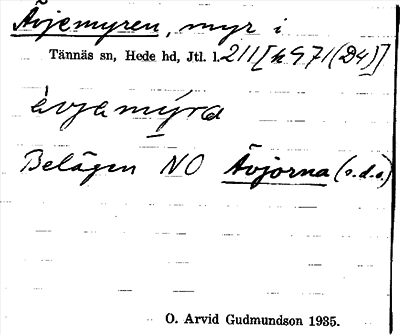 Ävjemyren, myr i
Tännäs sn, Hede hd, Jtl. l. 211 [k971(D4)]
àvjamýrɑ
Belägen NO Ävjorna (s.d.o.)
O. Arvid Gudmundson 1935.